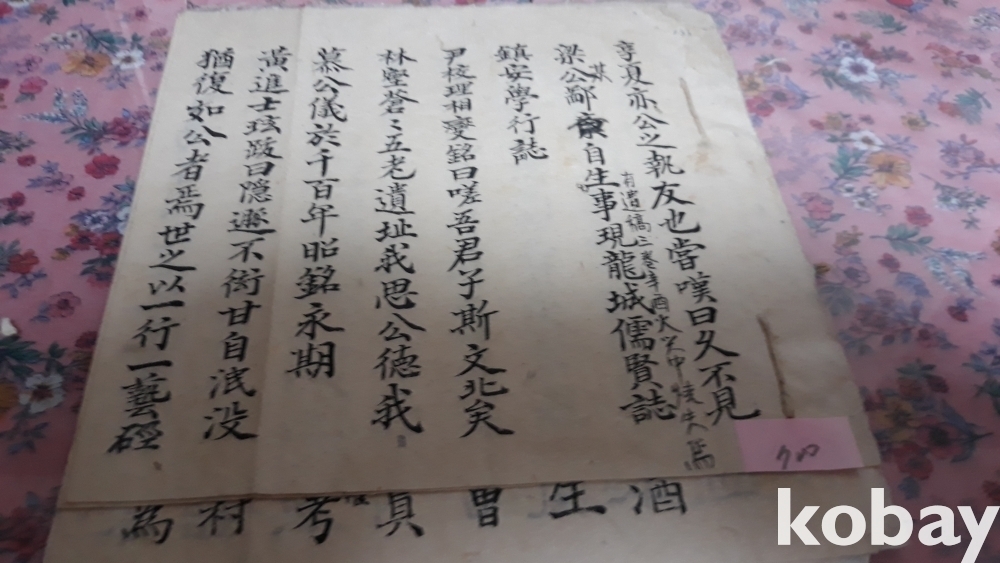 享夏亦公之執友也當嘆曰久不見
梁公其鄙自生事現龍城儒賢誌
有遺稿三卷辛酉火中失焉
鎮安學行誌
尹校理相變銘曰嗟吾君子斯文北矣
林壑蒼〻五老遺址我思公德我
慕公儀於千百年昭銘永期
黃進士玹跋曰隱遯不衒甘自泯没
猶復如公者焉世之以一行一藝硜
酒
生
曾
真
考
村
為
kobay